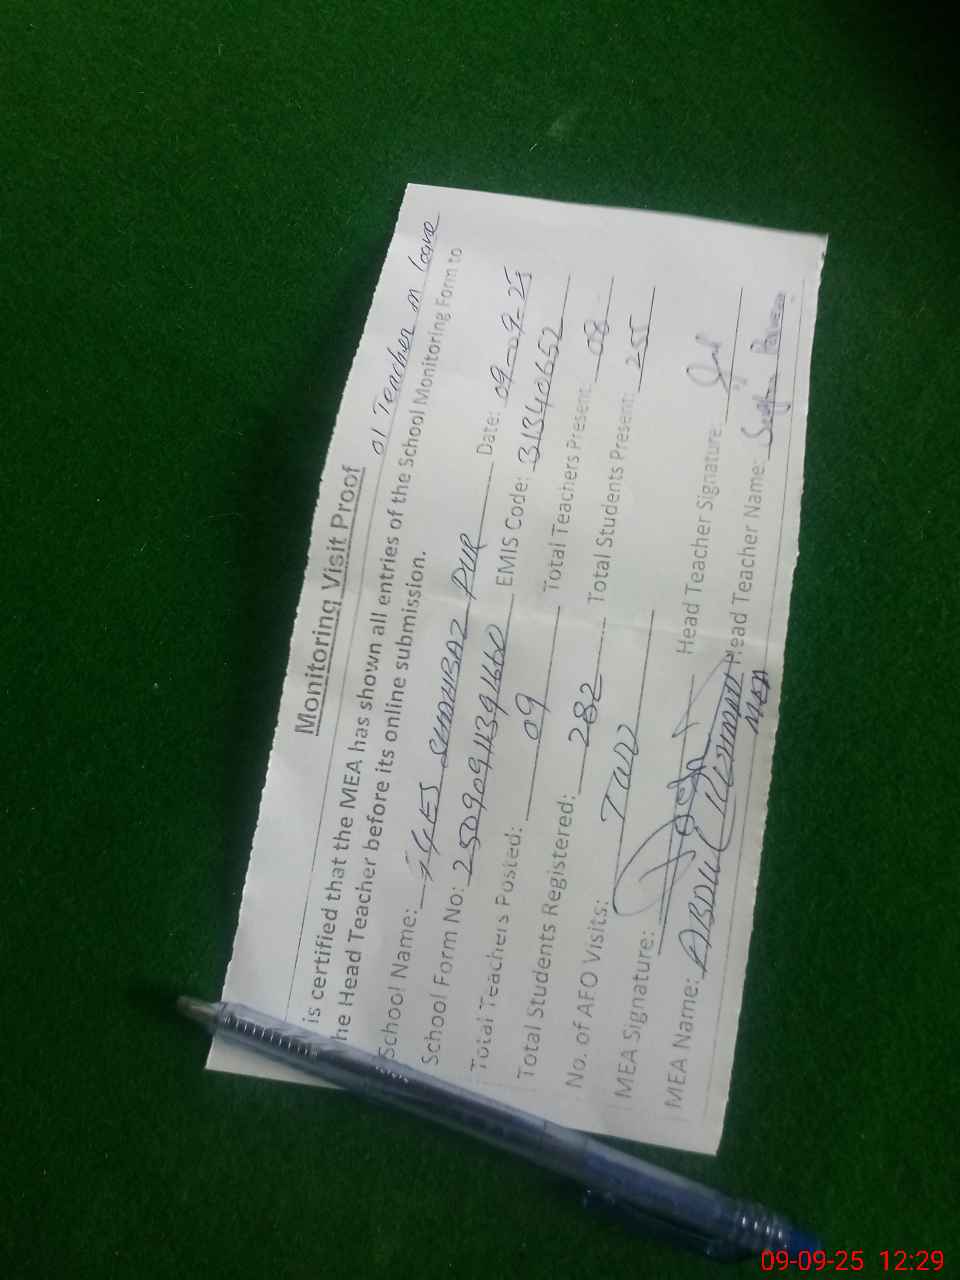 Monitoring Visit Proof
01 Teacher on leave
is certified that the MEA has shown all entries of the School Monitoring Form to
he Head Teacher before its online submission.
School Name: GGES SHAHBAZ PUR Date: 09-09-25
School Form No: 25090911391660 EMIS Code: 31340652
Total Teachers Posted: 09 Total Teachers Present: 08
Total Students Registered: 282 Total Students Present: 255
No. of AFO Visits: TWO
MEA Signature: Head Teacher Signature:
MEA Name: ABDUL Head Teacher Name: Parveen
MEA
09-09-25 12:29